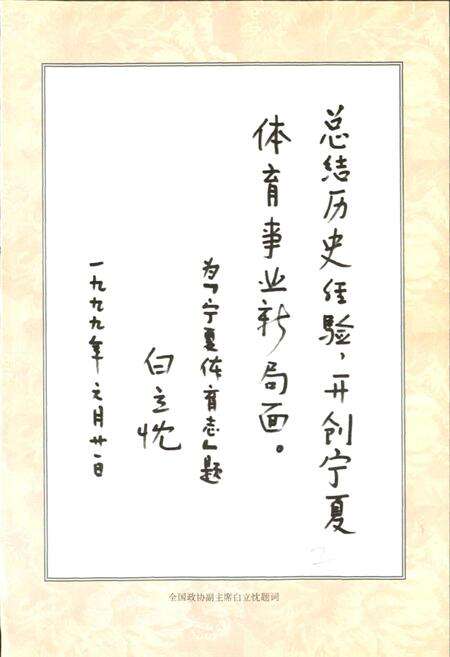 总结历史经验，开创宁夏
体育事业新局面。
为「宁夏体育志」题
白立忱
一九九九年元月廿一日
全国政协副主席白立忱题词